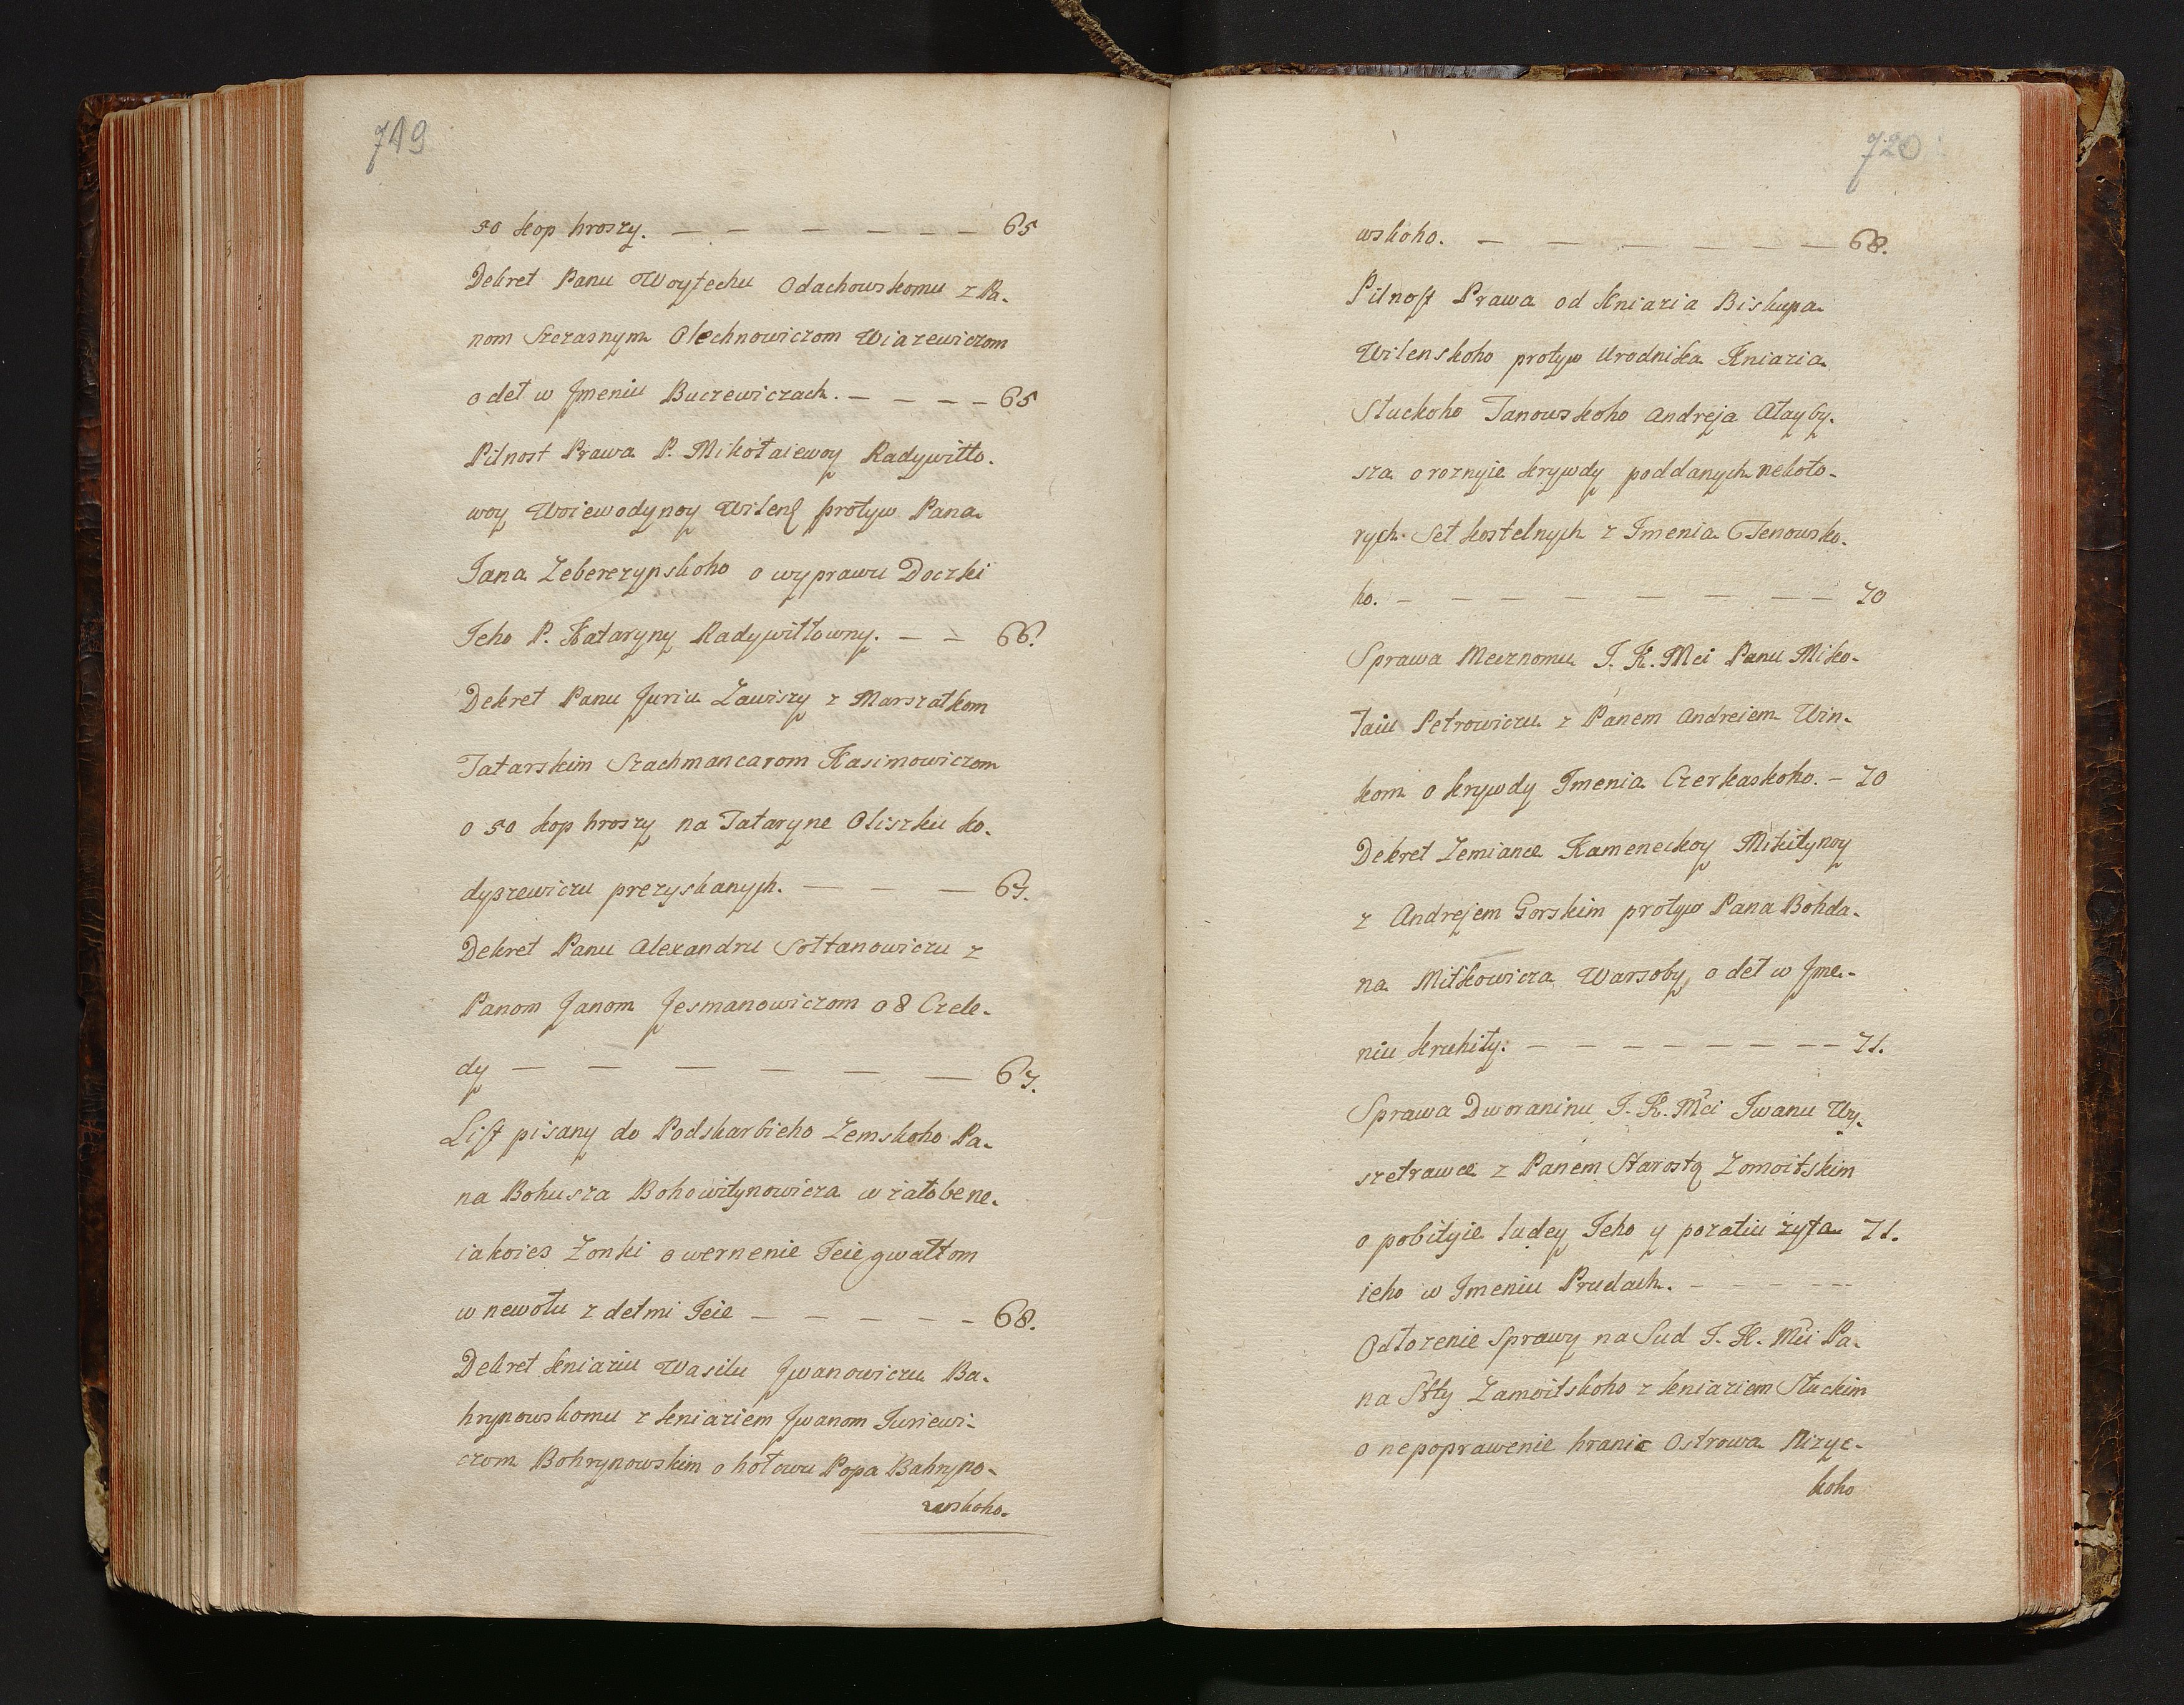 719
50 kop hroszy. — — — — — — 65
Dekret Panu Woytechu Odachowskomu z Pa-
nom Szczasnym Olechnowiczom Wiazewiczom
o det w Jmeniu Buczewiczach. — — — — 65
Pilnost Prawa P. Mikołaiewoy Radywiło-
woy Woiewodynoy Wilenſ protyw Pana
Jana Zeberezynskoho o wyprawu Doczki
Jeho P. Kataryny Radywiłłowny. — — 66.
Dekret Panu Juriu Zawiszy z Marszałkom
Tatarskim Szachmancarom Kasimowiczom
o 50 kop hroszy na Tataryne Oliszku ko-
dyszewiczu prezyskanych. — — — 67.
Dekret Panu Alexandru Sołtanowiczu z
Panom Janom Jesmanowiczom o 8 Czele-
dy — — — — — — 67.
Liſt pisany do Podskarbieho Zemskoho Pa-
na Bohusza Bohowitynowicza w załobe ne-
iakoies Zonki o wernenie Jeie gwałtom
w newolu z detmi Jeie — — — — — 68.
Dekret kniaziu Wasilu Jwanowiczu Ba-
hrynowskomu z kniaziem Jwanom Juriewi-
czom Bohrynowskim o hołowu Popa Bahryno-
wskoho.
720
wskoho. — — — — — — 68.
Pilnoſt Prawa od kniazia Biskupa
Wilenskoho protyw Urodnika Kniazia
Słuckoho Janowskoho Andreja Ałayby-
sza o roznyie krywdy poddanych nekoto-
rych Seł kostelnych z Jmenia Jenowsko-
ho. — — — — — — — — 70
Sprawa Mecznomu J. K. Mci Panu Miko-
łaiu Petrowiczu z Panem Andreiem Win-
kom o krywdy Jmenia Czerkaskoho. — 70
Dekret Zemiance Kameneckoy Mikitynoy
z Andrejem Gorskim protyw Pana Bohda-
na Mitkowicza Warsoby, o det w Jme-
niu kruhiły. — — — — — — — — 71.
Sprawa Dworaninu J. K. Mci Jwanu Wy-
szetrawce z Panem Starostą Zomoitskim
o pobityie ludey Jeho y pozatiu żyta 71.
ieho w Jmeniu Prudach. — — — —
Odłozenie Sprawy na Sud J. K. Mci Pa-
na Stty Zamoitskoho z kniaziem Słuckim
o nepoprawenie hranic Ostrowa Nizyc-
koho